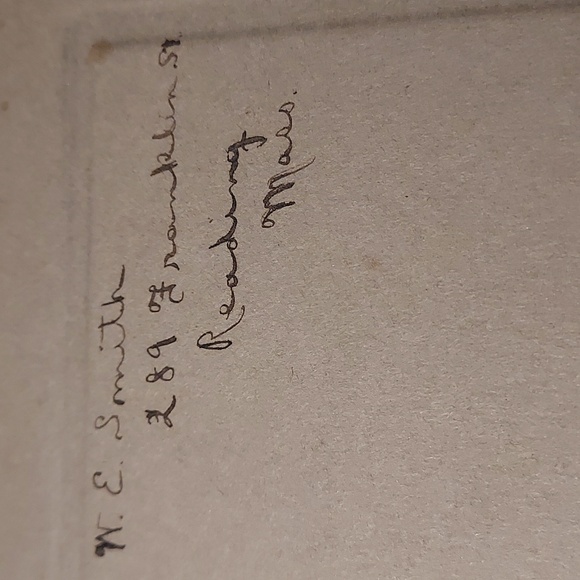 W. E. Smith
289 Franklin St.
Reading
Mass.